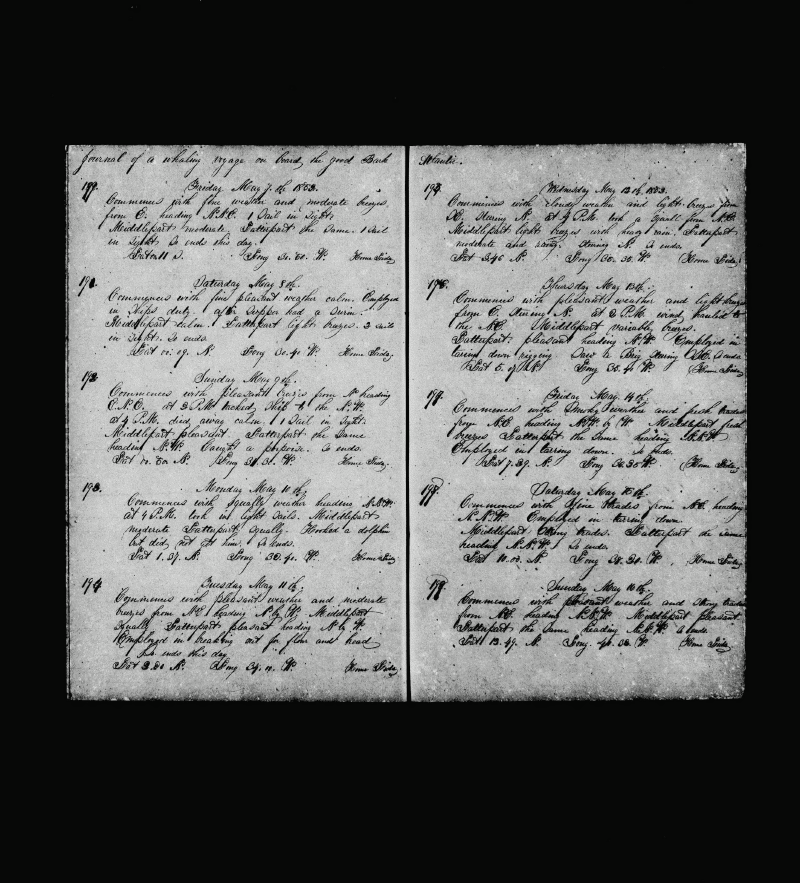 Journal of a whaling voyage on board the good Bark
Friday May 7th 1853.
Commences with fine weather and moderate breezes
from E. heading N.N.E. 1 Sail in Sight.
Middlepart moderate. Latterpart the Same. 1 Sail
in Sight. So ends this day.
Long W. Home Side
Saturday May 8th.
Commences with fine pleasant weather calm. Employed
in Ships duty. after Supper had a
Middlepart calm. Latterpart light breezes. 3 Sails
in Sight. So ends.
Lat 00.09. N. Long 30.40 W. Home Side
192.
Sunday May 9th.
Commences with pleasant breezes from N heading
E.N.E. at 3 P.M. tacked Ship to the N.W.
at 4 P.M. died away calm. 11 Sail in Sight.
Middlepart pleasant Latterpart the Same
heading N.W. Caught a porpoise. So ends.
Lat N. Long 31. W. Home Side.
193.
Monday May 10th.
Commences with Squally weather heading N.N.W.
at 9 P.M. took in light Sails. Middlepart
moderate Latterpart Squally. Hooked a dolphin
but did not get him. So ends.
Lat 1.37. N. Long W. Home Side
194
Tuesday May 11th.
Commences with pleasant weather and moderate
breezes from N.E. heading N. by W. Middlepart
Squally Latterpart pleasant heading N. b. W
Employed in breaking out for flour and bread
So ends this day
Lat N. Long W. Home Side
Atlantic.
Wednesday May 12th 1853.
Commences with cloudy weather and light breezes from
Stearing N. at 4 P.M. took a Squall from N.E.
Middlepart light breezes with heavy rain. Latterpart
moderate and rainy. Stearing N. So ends.
Lat 3.45 N. Long 30. W. Home Side
Thursday May 13th.
Commences with pleasant weather and light breezes
from E. Stearing N. at 3 P.M. wind hauled to
the N.E. Middlepart variable breezes.
Latterpart pleasant heading N.W. Employed in
tarring down rigging Saw a Brig Stearing So ends
Lat 5.07 N. Long W. Home Side
Friday May 14th.
Commences with Smoky weather and fresh trades
from N.E. heading N.W. by W. Middlepart fresh
breezes Latterpart the Same heading
Employed in tarring down. So ends.
Lat 7.39. N. Long W. Home Side,
Saturday May 15th.
Commences with fine trades from N.E. heading
N.N.W. Employed in tarring down
Middlepart Strong trades. Latterpart the same
heading N.N.W. So ends.
Lat N. Long W. Home Side,
Sunday May 16th.
Commences with pleasant weather and Strong trades
from N.E. heading N.N.W. Middlepart pleasant.
Latterpart the Same heading N.N.W. So ends.
Lat 13.49. N. Long W. Home Side,